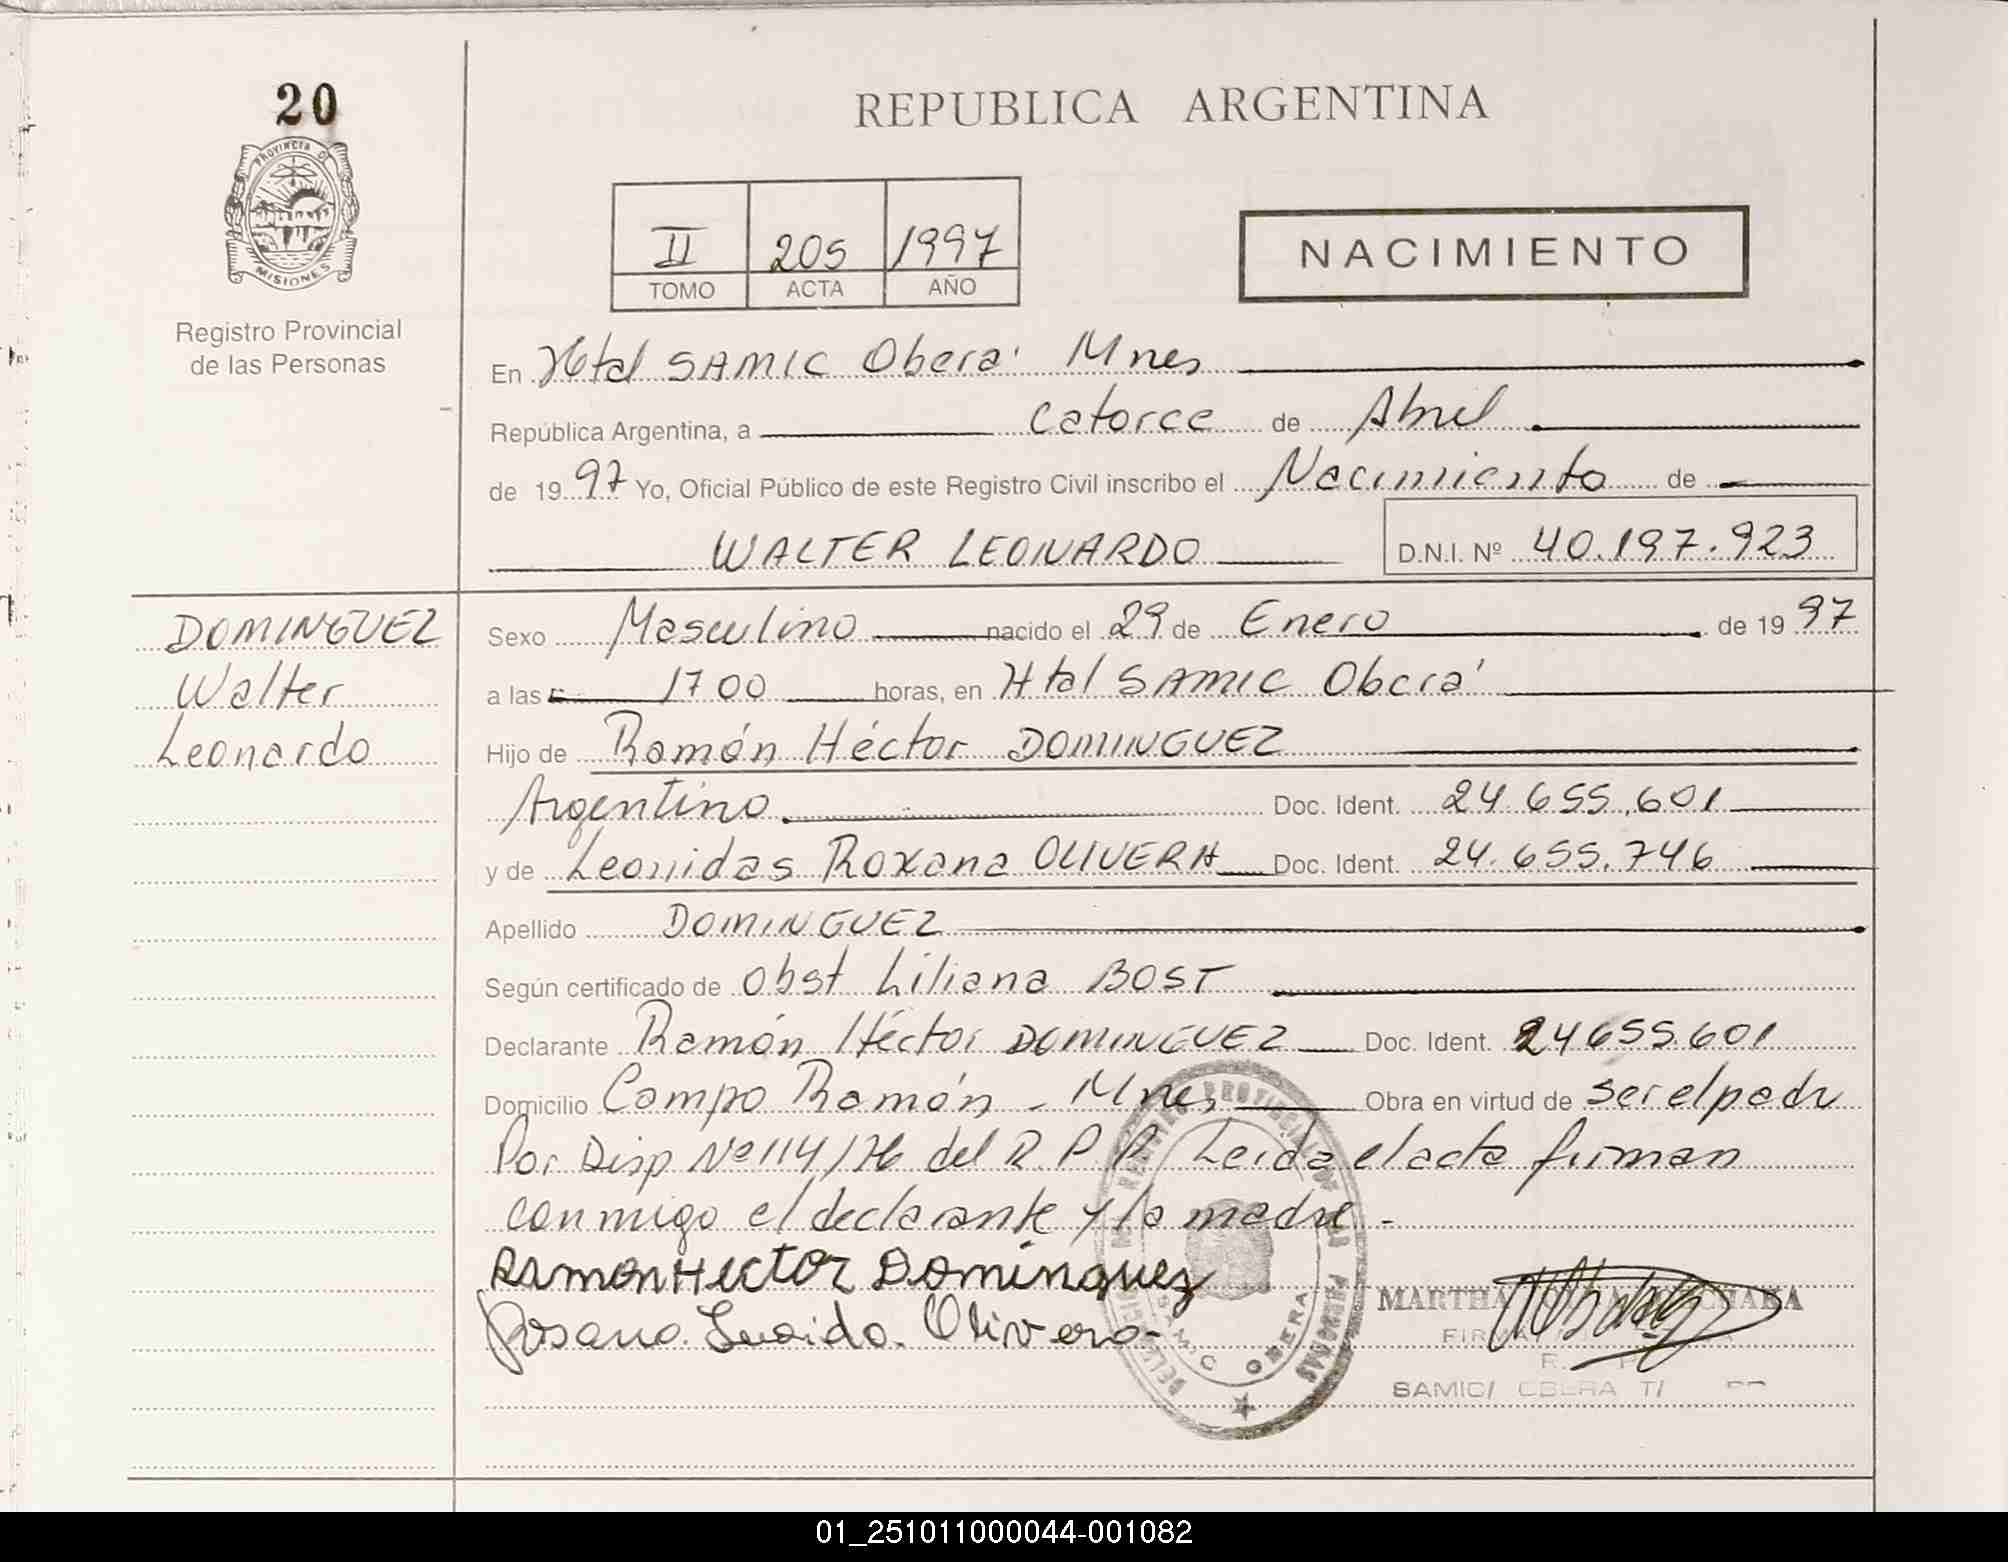 20
PROVINCIA DE
MISIONES
Registro Provincial
de las Personas
REPUBLICA ARGENTINA
II 205 1997
TOMO ACTA AÑO
NACIMIENTO
En Htal SAMIC Oberá Mnes
República Argentina, a catorce de Abril
de 1997 Yo, Oficial Público de este Registro Civil inscribo el Nacimiento de
WALTER LEONARDO D.N.I. Nº 40.197.923
DOMINGUEZ
Walter
Leonardo
Sexo Masculino nacido el 29 de Enero de 1997
a las 17 00 horas, en Htal SAMIC Oberá
Hijo de Ramón Héctor DOMINGUEZ
Argentino Doc. Ident. 24.655.601
y de Leonidas Roxana OLIVERA Doc. Ident. 24.655.746
Apellido DOMINGUEZ
Según certificado de Obst Liliana BOST
Declarante Ramón Héctor DOMINGUEZ Doc. Ident. 24655.601
Domicilio Campo Ramón - Mnes Obra en virtud de ser el padre
Por Disp Nº 114/76 del R.P.P. Leida el acta firman
conmigo el declarante y la madre.-
Ramon Hector Dominguez
Olivera
MARTHA
SAMIC OBERA
01_251011000044-001082